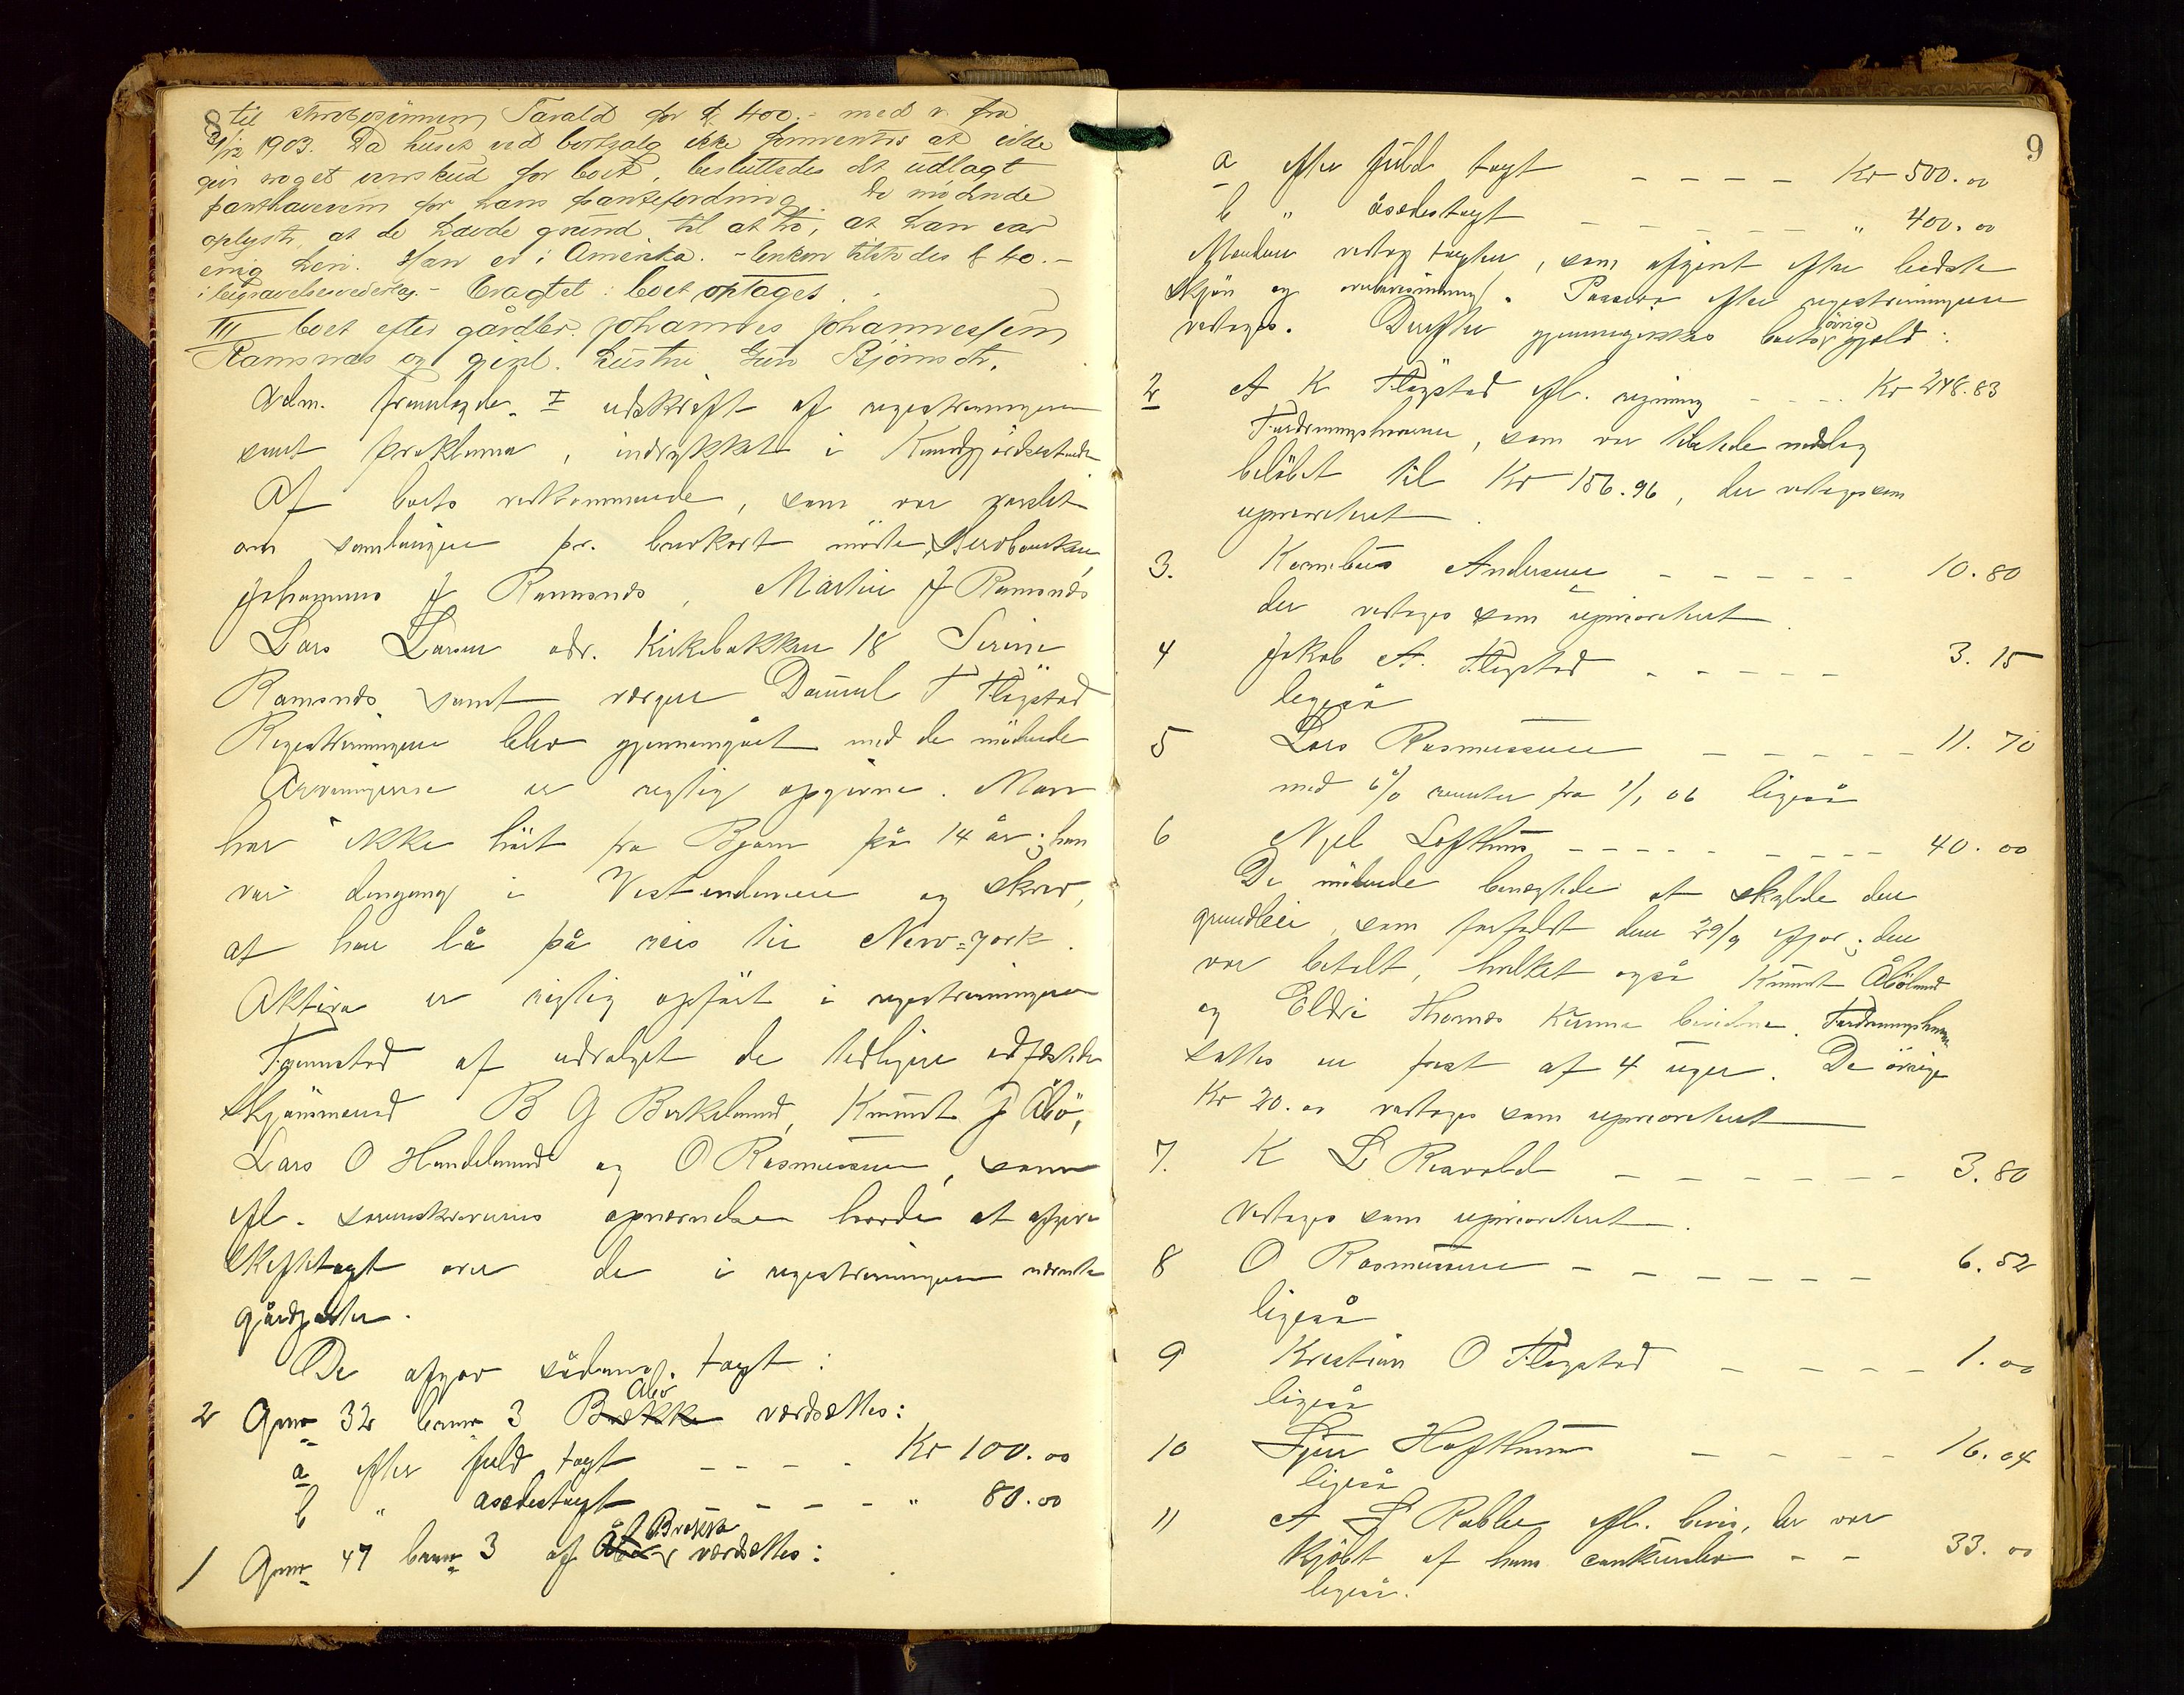 8 til Tarald for kr 400.- med r. fra
31/12 1903. Da huset ved bortsalg ikke forventes at ville
give noget overskud for boet, besluttedes det udlagt
panthaveren for hans pantefordring. De mødende
oplyste, at de havde grund til at tro, at han var
enig heri. Han er i Amerika. - Enken tilstodes kr 40.-
i begravelsesvederlag. - Eragtet: boet optages.
III boet efter gårdbr. Johannes Johannessen
Ramsnæs og gjenl. hustru Guri Bjørnsdtr.
Adm. fremlagde I udskrift af registreringen
samt proklama, indrykket i Kundgjørelsestid.
Af boets vedkommende, som var varslet
om samlingen pr. brevkort mødte, Stervboenken,
Johannes J Ramsnæs, Martin J Ramsnæs
Lars Larsen adr. Kirkebakken 18 Serine
Ramsnæs samt værgen Daniel T Fløgstad
Registreringen blev gjennemgået med de mødende
Arvingerne er rigtig opgivne. Man
har ikke hørt fra Bjørn på 14 år; han
var dengang i Vestindien og skrev,
at han lå på reis til New-York.
Aktiva er rigtig opført i registreringen
Fremstod af udvalget de tidligere edfæstede
skjønsmænd B G Birkeland, Knut J Åbø,
Lars O Handeland og O Rasmussen, som
ifl. sorenskriverens opnævnelse havde at afgive
skiftetagt over de i registreringen nævnte
gårdparter.
De afgav sådan tagt:
2 Gnr 32 bnr 3 Brække Åbø værdsættes:
a efter fuld tagt - - - - Kr 100.00
b " åsædestagt - - - - " 80.00
1 Gnr 47 bnr 3 af Åbø Brække værdsættes:
9
a efter fuld tagt - - - - Kr 500.00
b " åsædestagt - - - - " 400.00
Mændene vedtog tagten, som afgivet efter bedste
skjøn og overbevisning. Passiva efter registreringen
vedtages. Derefter gjennemgikkes boets øvrige gjæld:
2 A K Fløgstad ifl. regning - - - - Kr 248.83
Fordringshaveren, som var tilstede nedslog
beløbet til Kr 156.96, der vedtages som
uprioriteret.
3. Kornelius Andersen - - - - - 10.80
der vedtages som uprioriteret.
4 Jakob A. Fløgstad - - - - - 3.15
ligeså
5 Lars Rasmussen - - - - - 11.70
med 6% renter fra 1/1 06 ligeså
6 Njel Lofthus - - - - - - - - 40.00
De mødende benegtede at skylde den
grundleie, som forfaldt den 29/9 ifjor; den
var betalt, hvilket også Knut Åbøland
og Eldri Thomas kunne bevidne. Fordringshav.
sattes en frist af 4 uger. De øvrige
Kr 20.00 vedtages som uprioriteret
7. K L Ravolds - - - - - - 3.80
Vedtages som uprioriteret.
8 O Rasmussen - - - - - - 6.52
ligeså
9 Kristian O Fløgstad - - - - 1.00
ligeså
10 Sjur Hofthun - - - - 16.04
ligeså
11 A S Rabbe ifl. bevis, der var
kjøbt af hans enkunder - - 33.00
ligeså.